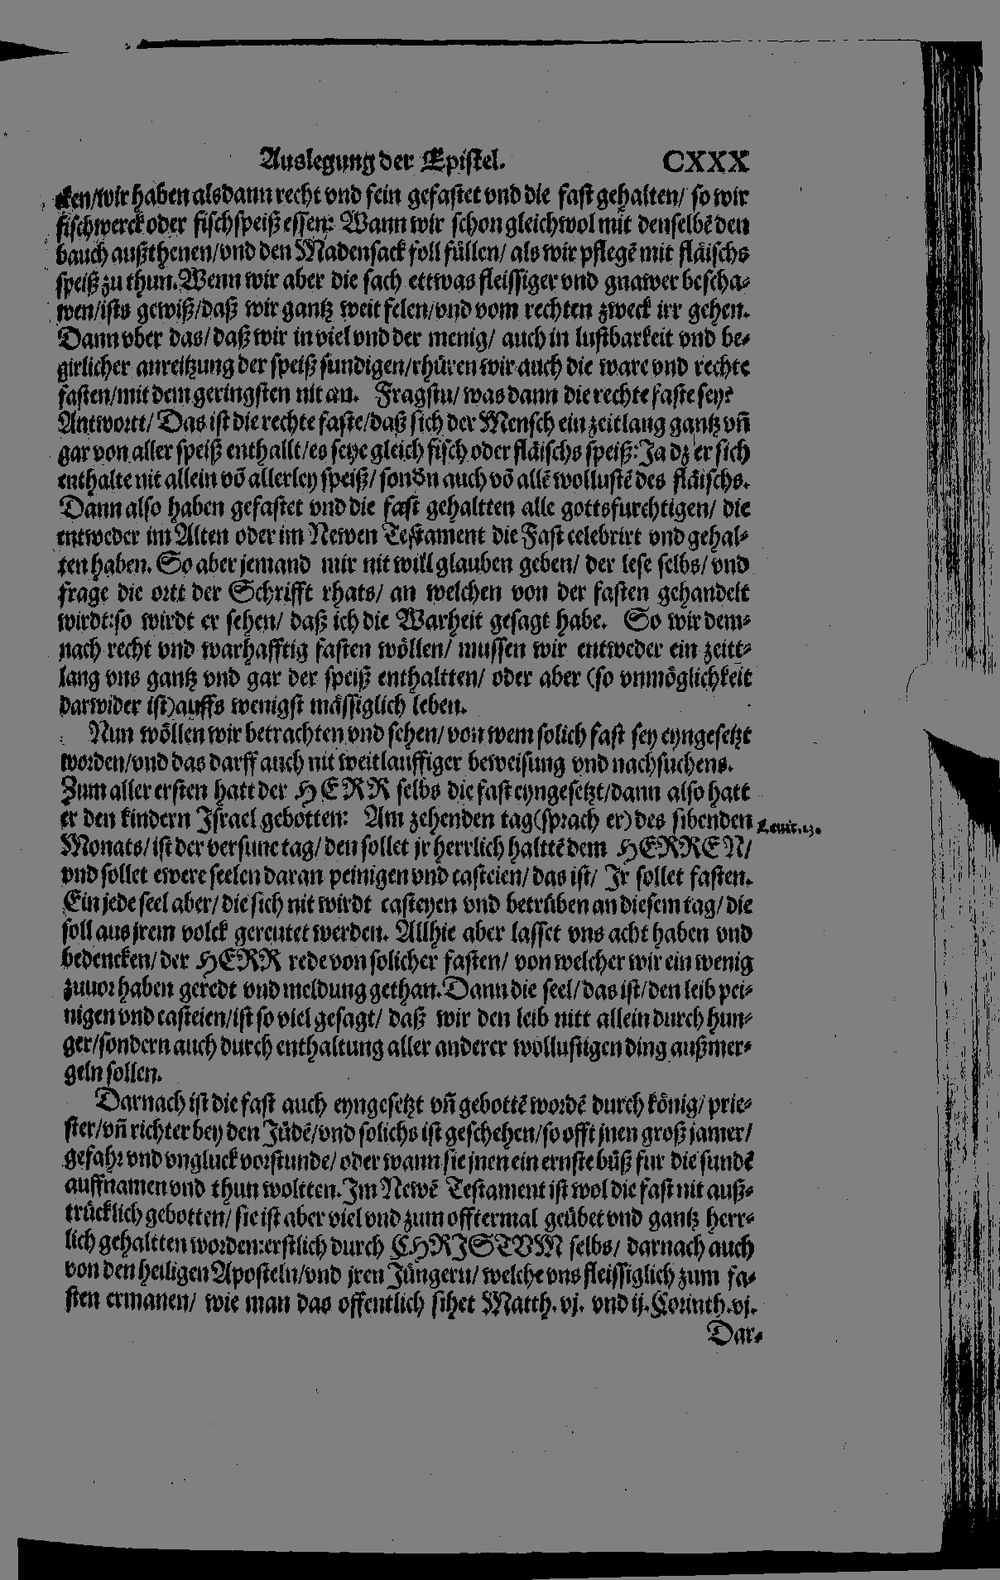 Auslegung der Epistel. CXXX
cken/wir haben alsdann recht vnd fein gefastet vnd die fast gehalten/ so wir
fischwerck oder fischspeiß essen: Wann wir schon gleichwol mit denselbē den
bauch außthenen/vnd den Madensack foll füllen/ als wir pflegē mit fläischs
speiß zu thun. Wenn wir aber die sach ettwas fleissiger vnd gnawer bescha-
wen/ists gewiß/daß wir gantz weit felen/vnd vom rechten zweck irr gehen.
Dann vber das/ daß wir in viel vnd der menig/ auch in lustbarkeit vnd be-
girlicher anreitzung der speiß sundigen/rhüren wir auch die ware vnd rechte
fasten/mit dem geringsten nit an. Fragstu/ was dann die rechte faste sey?
Antwortt/ Das ist die rechte faste/daß sich der Mensch ein zeitlang gantz vñ
gar von aller speiß enthallt/es seye gleich fisch oder fläischs speiß: Ja dz er sich
enthalte nit allein vō allerley speiß/ sondn auch vō allē wollustē des fläischs.
Dann also haben gefastet vnd die fast gehaltten alle gottsfurchtigen/ die
entweder im Alten oder im Newen Testament die Fast celebrirt vnd gehal-
ten haben. So aber jemand mir nit will glauben geben/ der lese selbs/ vnd
frage die ortt der Schrifft rhats/ an welchen von der fasten gehandelt
wirdt:so wirdt er sehen/ daß ich die Warheit gesagt habe. So wir dem-
nach recht vnd warhafftig fasten wöllen/ mussen wir entweder ein zeitt-
lang vns gantz vnd gar der speiß enthaltten/ oder aber (so vnmöglichkeit
darwider ist) auffs wenigst mässiglich leben.
Nun wöllen wir betrachten vnd sehen/ von wem solich fast sey eyngesetzt
worden/vnd das darff auch nit weitlauffiger beweisung vnd nachsuchens.
Zum aller ersten hatt der HERR selbs die fast eyngesetzt/dann also hatt
er den kindern Israel gebotten: Am zehenden tag (sprach er) des sibenden
Leuit.23.
Monats/ist der versune tag/ den sollet jr herrlich halttē dem HERREN/
vnd sollet ewere seelen daran peinigen vnd casteien/ das ist/ Jr sollet fasten.
Ein jede seel aber/ die sich nit wirdt casteyen vnd betrüben an diesem tag/ die
soll aus jrem volck gereutet werden. Allhie aber lasset vns acht haben vnd
bedencken/ der HERR rede von solicher fasten/ von welcher wir ein wenig
zuuor haben geredt vnd meldung gethan. Dann die seel/ das ist/ den leib pei-
nigen vnd casteien/ist so viel gesagt/ daß wir den leib nitt allein durch hun-
ger/sondern auch durch enthaltung aller anderer wollustigen ding außmer-
geln sollen.
Darnach ist die fast auch eyngesetzt vñ gebottē wordē durch könig/ prie-
ster/vñ richter bey den Jüdē/vnd solichs ist geschehen/so offt jnen groß jamer/
gefahr vnd vngluck vorstunde/ oder wann sie jnen ein ernste büß fur die sundē
auffnamen vnd thun woltten. Im Newē Testament ist wol die fast nit auß-
trücklich gebotten/ sie ist aber viel vnd zum offtermal geübet vnd gantz herr-
lich gehaltten worden:erstlich durch CHRISTVM selbs/ darnach auch
von den heiligen Aposteln/vnd jren Jüngern/ welche vns fleissiglich zum fa-
sten ermanen/ wie man das offentlich sihet Matth. vj. vnd ij. Corinth. vj.
Dar-